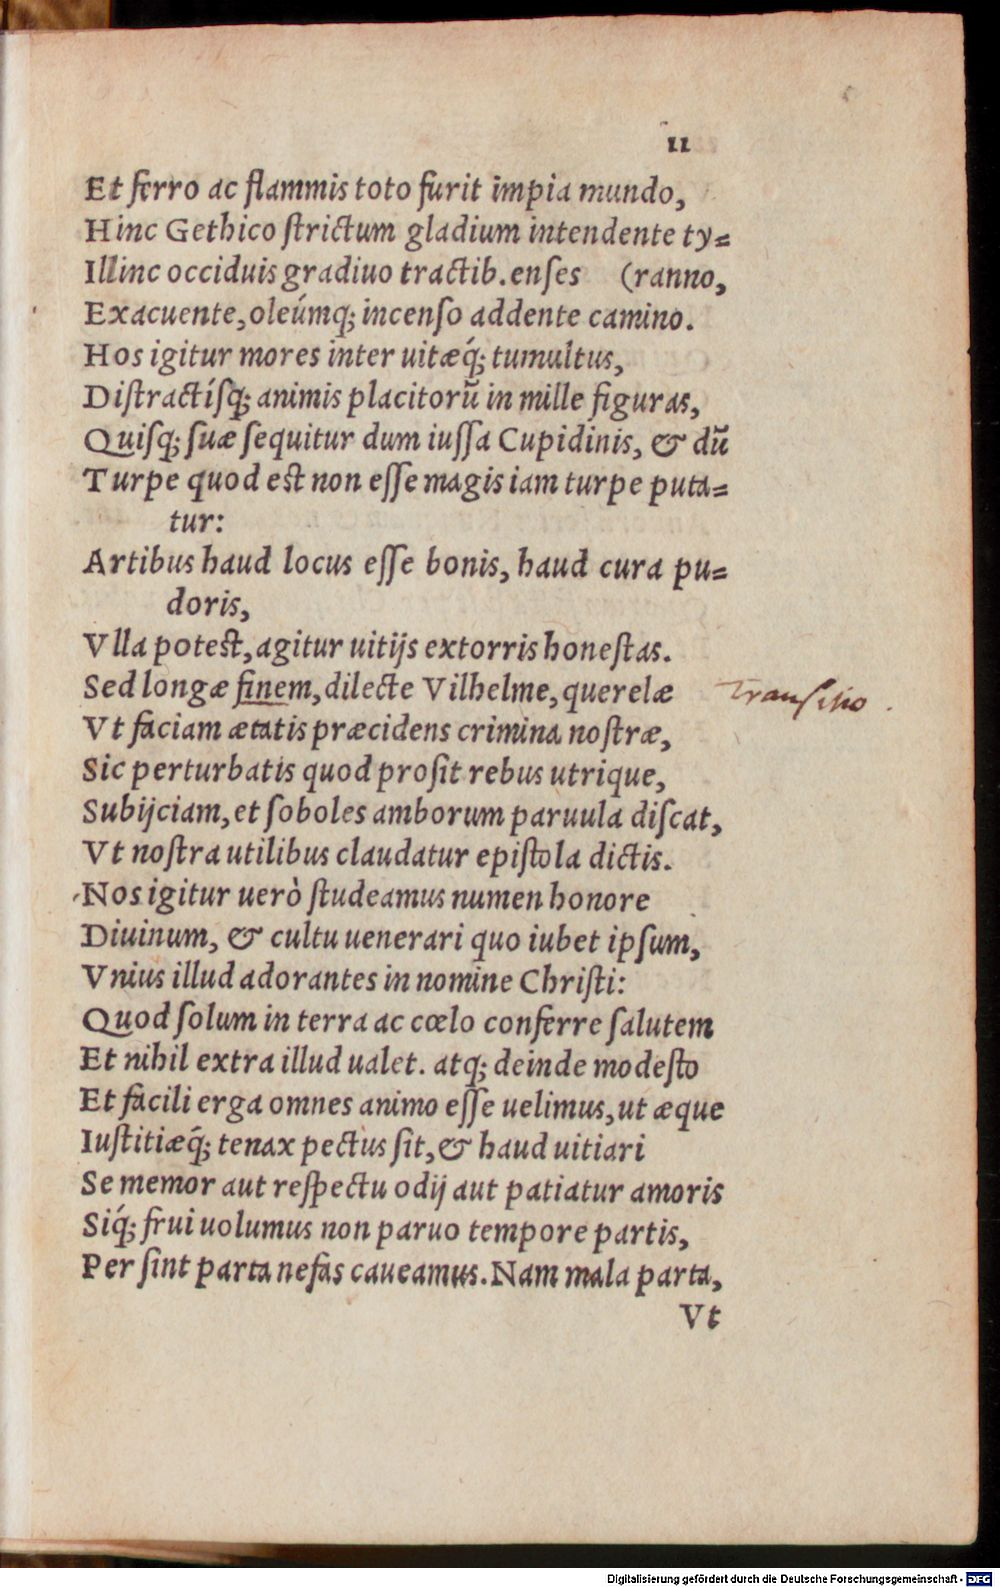 11
Et ferro ac flammis toto furit impia mundo,
Hinc Gethico strictum gladium intendente ty=
Illinc occiduis gradiuo tractib. enses (ranno,
Exacuente, oleúmq; incenso addente camino.
Hos igitur mores inter uitæq́; tumultus,
Distractísq; animis placitorũ in mille figuras,
Quisq; suæ sequitur dum iussa Cupidinis, & dũ
Turpe quod est non esse magis iam turpe puta=
tur:
Artibus haud locus esse bonis, haud cura pu=
doris,
Vlla potest, agitur uitijs extorris honestas.
Sed longæ finem, dilecte Vilhelme, querelæ
Transitio.
Vt faciam ætatis præcidens crimina nostræ,
Sic perturbatis quod prosit rebus utrique,
Subijciam, et soboles amborum paruula discat,
Vt nostra utilibus claudatur epistola dictis.
Nos igitur uerò studeamus numen honore
Diuinum, & cultu uenerari quo iubet ipsum,
Vnius illud adorantes in nomine Christi:
Quod solum in terra ac cœlo conferre salutem
Et nihil extra illud ualet. atq; deinde modesto
Et facili erga omnes animo esse uelimus, ut æque
Iustitiæq́; tenax pectus sit, & haud uitiari
Se memor aut respectu odij aut patiatur amoris
Siq́; frui uolumus non paruo tempore partis,
Per sint parta nefas caueamus. Nam mala parta,
Vt
Digitalisierung gefördert durch die Deutsche Forschungsgemeinschaft - DFG